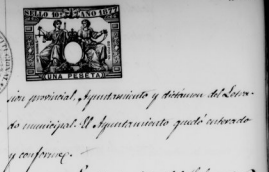 SELLO 10º AÑO 1877
UNA PESETA
sion provincial, Ayuntamiento y dictámen del Letra-
do municipal. El Ayuntamiento quedó enterado
y conforme.